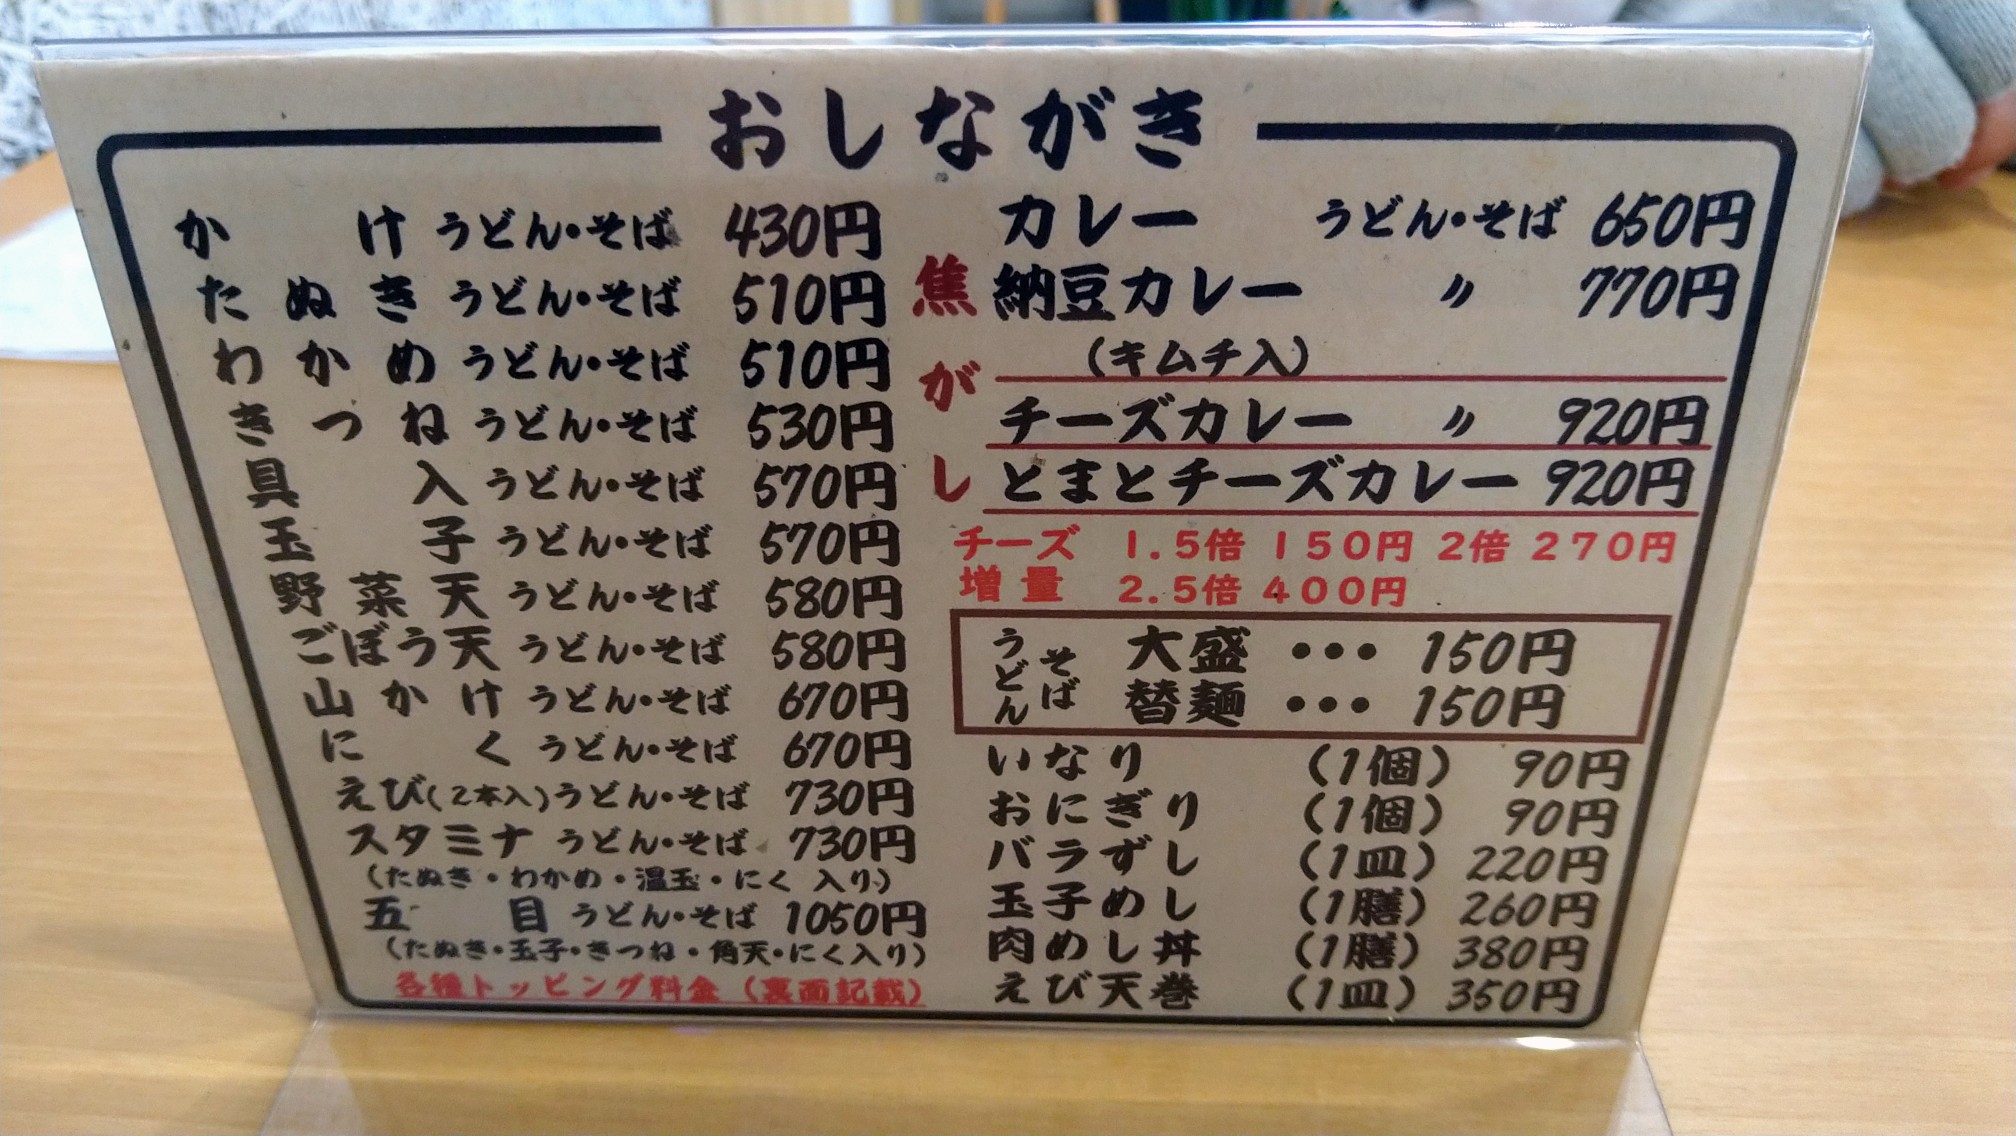 おしながき
かけ うどん・そば 430円
たぬき うどん・そば 510円
わかめ うどん・そば 510円
きつね うどん・そば 530円
具入 うどん・そば 570円
玉子 うどん・そば 570円
野菜天 うどん・そば 580円
ごぼう天 うどん・そば 580円
山かけ うどん・そば 670円
にく うどん・そば 670円
えび(2本入)うどん・そば 730円
スタミナ うどん・そば 730円
(たぬき・わかめ・温玉・にく 入り)
五目 うどん・そば 1050円
(たぬき・玉子・きつね・角天・にく入り)
各種トッピング料金(裏面記載)
カレー うどん・そば 650円
焦がし
納豆カレー 〃 770円
(キムチ入)
チーズカレー 〃 920円
とまとチーズカレー 920円
チーズ 1.5倍 150円 2倍 270円
増量 2.5倍 400円
うどん
そば
大盛 ・・・ 150円
替麺 ・・・ 150円
いなり (1個) 90円
おにぎり (1個) 90円
バラずし (1皿) 220円
玉子めし (1膳) 260円
肉めし丼 (1膳) 380円
えび天巻 (1皿) 350円